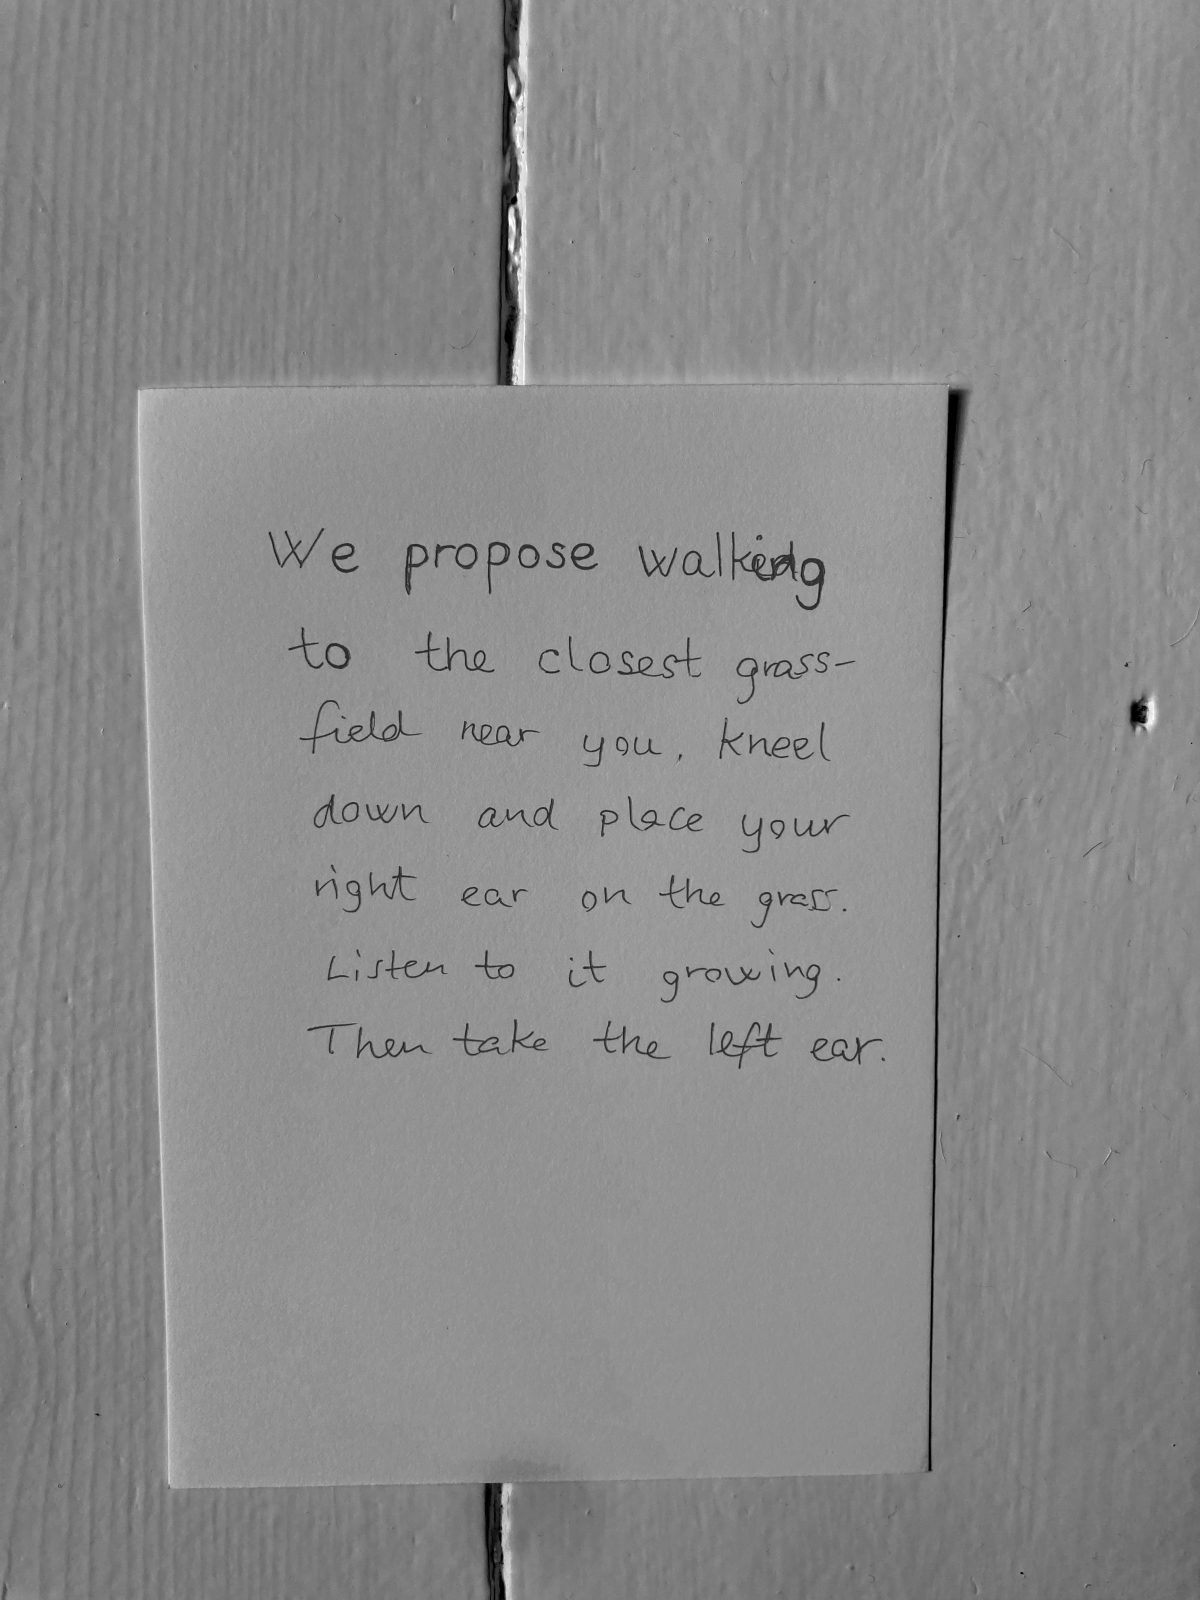 We propose walking
to the closest grass-
field near you, kneel
down and place your
right ear on the grass.
Listen to it growing.
Then take the left ear.